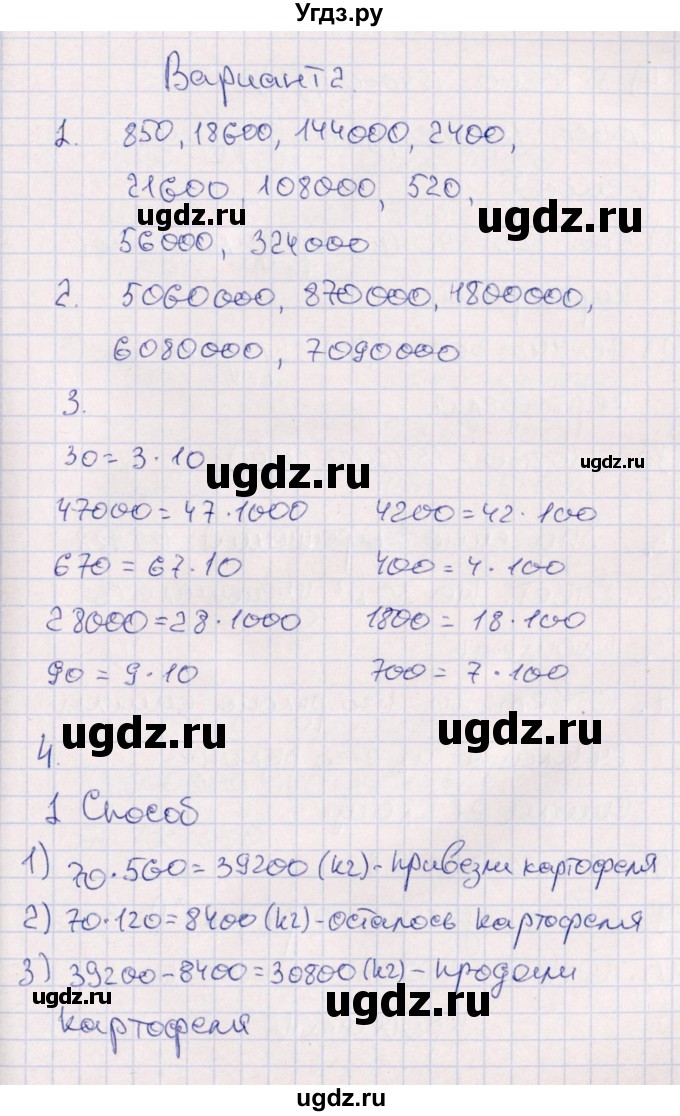 Угдз.ру
Вариант 2.
1. 850, 18600, 144000, 2400,
21600, 108000, 520,
ugdz.ru
ugdz.ru
56000, 324000
2. 5060000, 870000, 1800000,
6080000, 7090000
3.
30 = 3 · 10
ugdz.ru
ugdz.ru
47000 = 47 · 1000 4200 = 42 · 100
670 = 67 · 10 400 = 4 · 100
28000 = 28 · 1000 1800 = 18 · 100
90 = 9 · 10 700 = 7 · 100
ugdz.ru
ugdz.ru
4.
1 Способ
1) 70 · 560 = 39200 (кг) - привезли картофеля
2) 70 · 120 = 8400 (кг) - осталось картофеля
3) 39200 - 8400 = 30800 (кг) - продали
ugdz.ru
картофеля
ugdz.ru